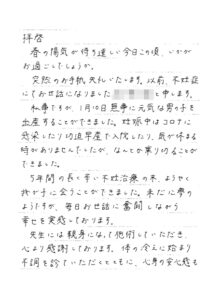 拝啓
春の陽気が待ち遠しい今日この頃、いかが
お過ごしでしょうか。
突然のお手紙失礼いたします。以前、不妊症
にてお世話になりました と申します。
私事ですが、1月10日無事に元気な男の子を
出産することができました。妊娠中はコロナに
感染したり切迫早産で入院したり、気が休まる
時がありませんでしたが、なんとか乗り切ることが
できました。
5年間の長く辛い不妊治療の末、ようやく
我が子に会うことができました。未だに夢の
ようですが、毎日お世話に奮闘しながら
幸せを実感しております。
先生には親身になって施術していただき、
心より感謝しております。体の冷えに始まり
不調を診ていただくとともに、心身の安心感も